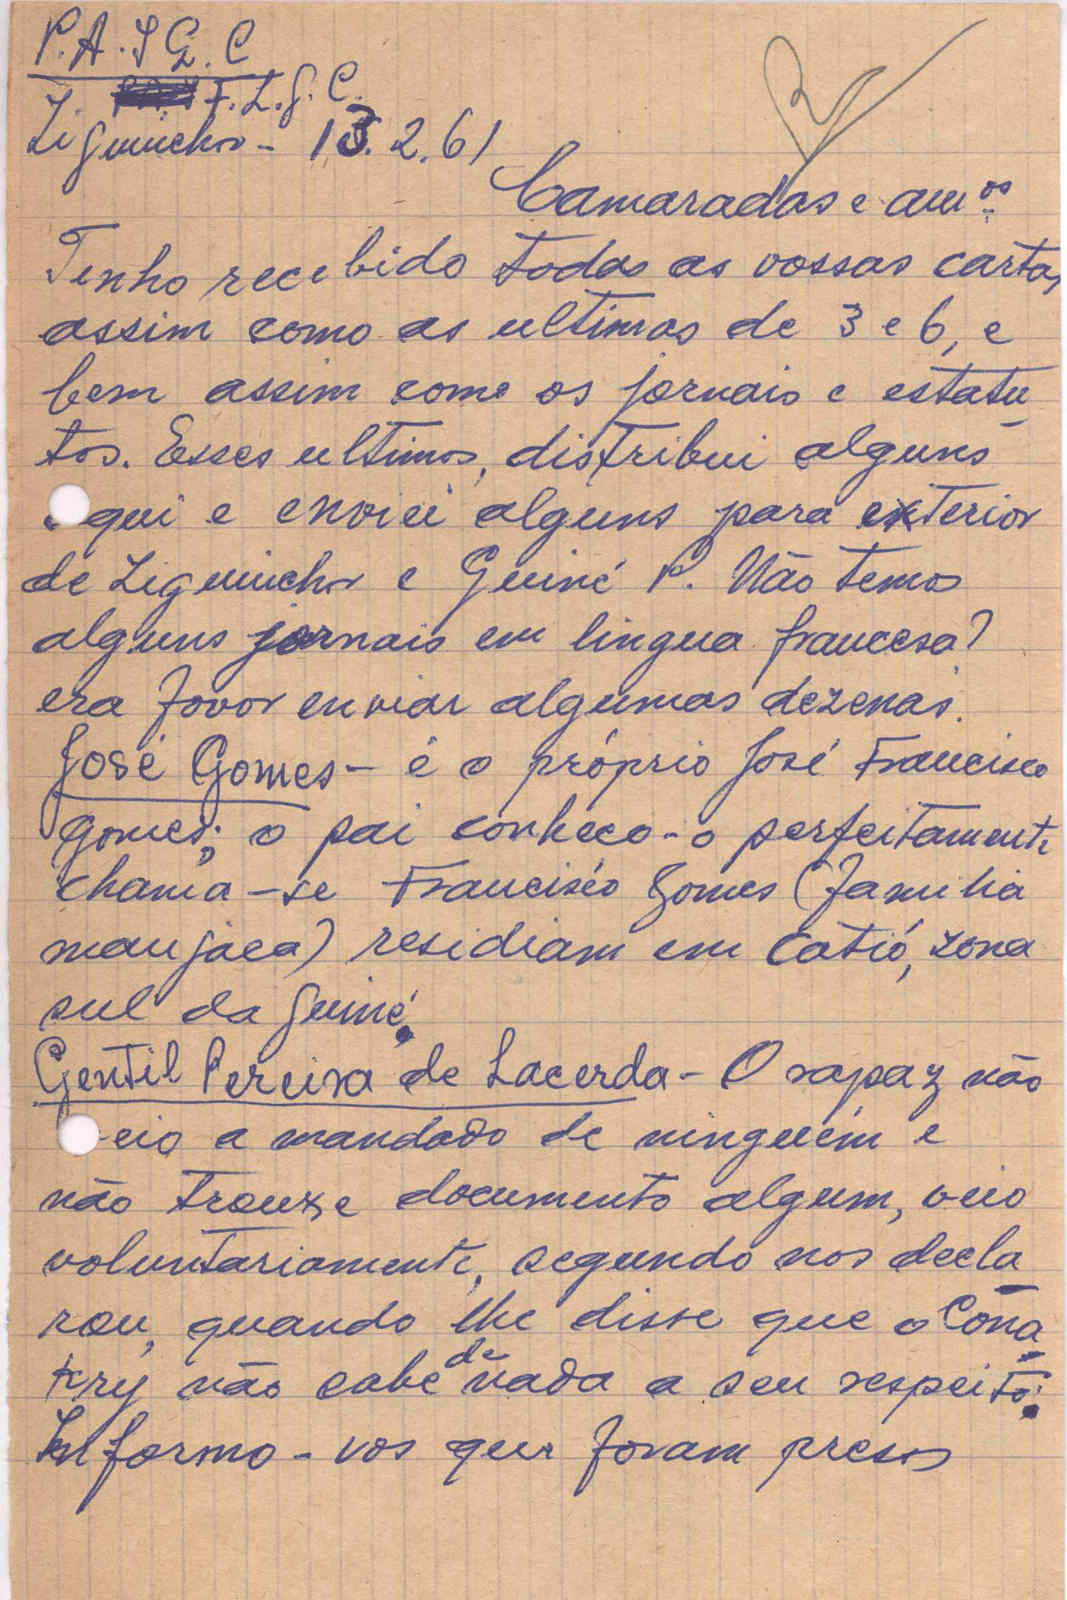 P.A.I G. C
F. L. G. C.
Ziguinchor - 13.2.61
Camaradas e amºs
Tenho recebido todas as vossas cartas,
assim como as ultimas de 3 e 6, e
bem assim como os jornais e estatu
tos. Esses ultimos, distribui alguns
aqui e enviei alguns para exterior
de Ziguinchor e Guiné P. Não temos
alguns jornais em lingua francesa?
era favor enviar algumas dezenas.
José Gomes - é o próprio José Francisco
Gomes; o pai conheco-o perfeitamente
chama-se Francisco Gomes (familia
manjaca) residiam em Catió, zona
sul da Guiné.
Gentil Pereira de Lacerda - O rapaz não
veio a mandado de ninguém e
não trouxe documento algum, veio
voluntariamente, segundo nos decla
rou, quando lhe disse que o Cona
kry não sabe de nada a seu respeito.
Informo-vos que foram presos